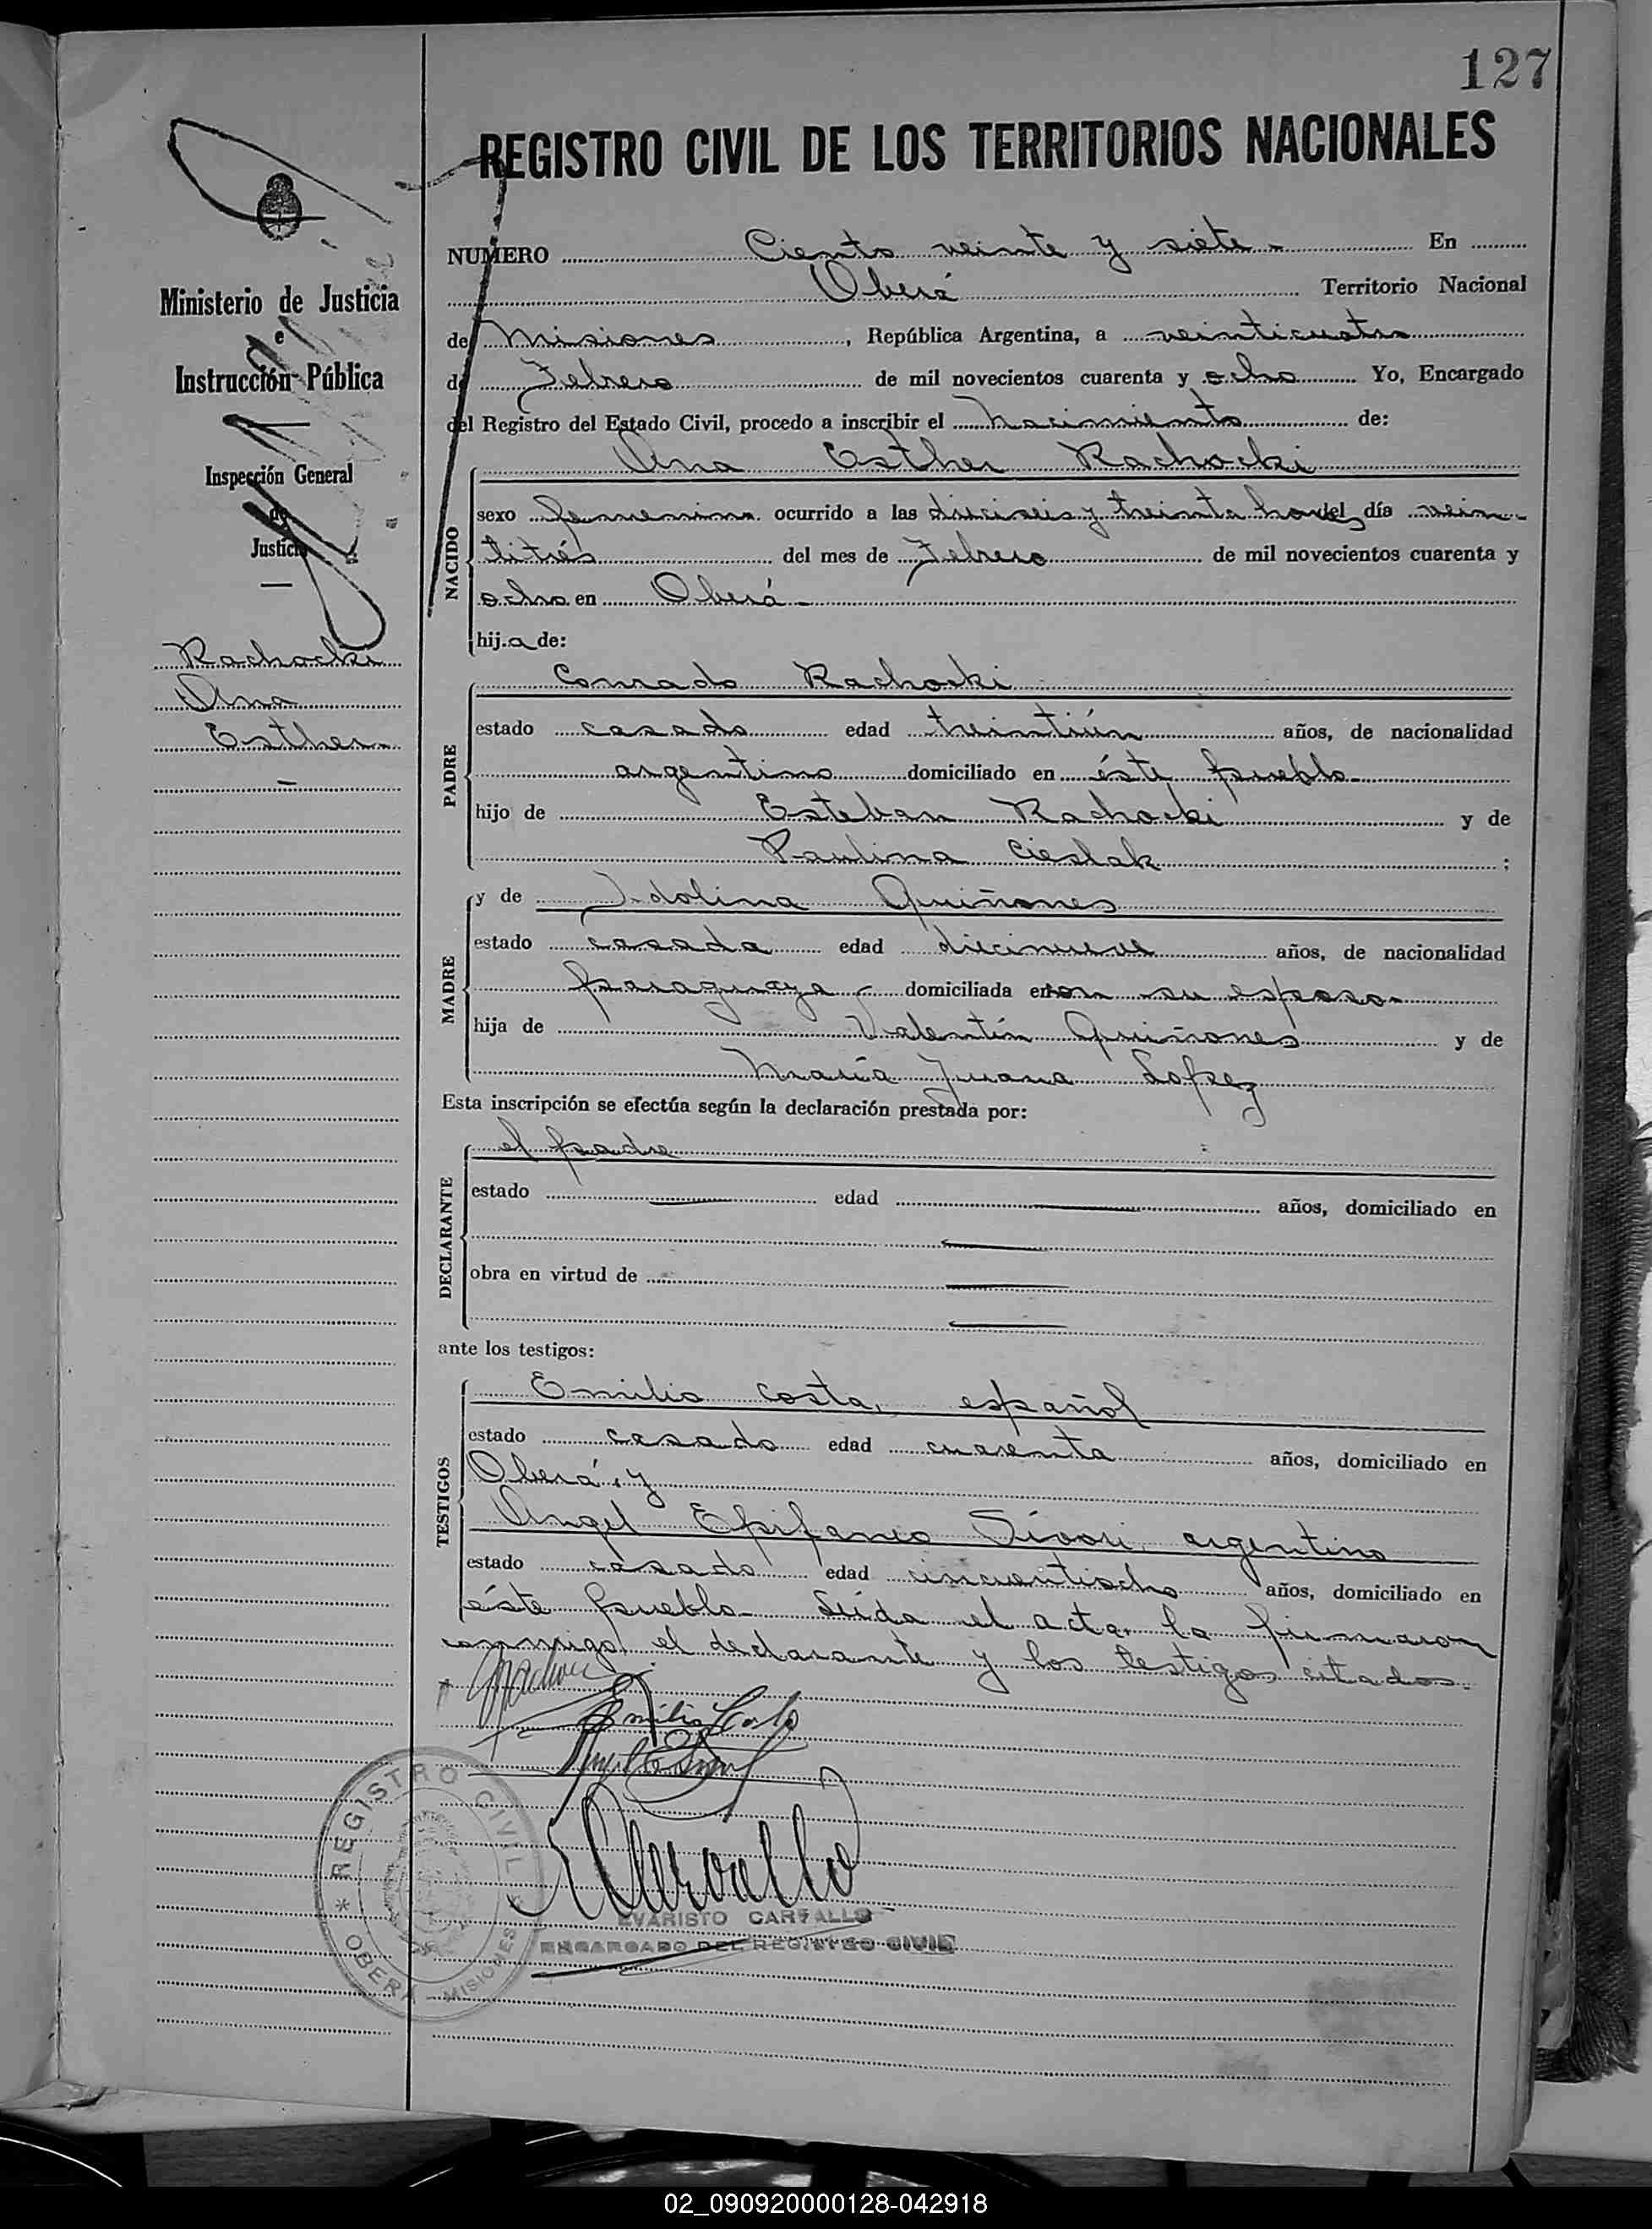 127
REGISTRO CIVIL DE LOS TERRITORIOS NACIONALES
Ministerio de Justicia
e
Instrucción Pública
Inspección General
de
Justicia
Rachocki
Ana
Esther
NUMERO Ciento veinte y siete - En
Oberá Territorio Nacional
de Misiones, República Argentina, a veinticuatro
de Febrero de mil novecientos cuarenta y ocho Yo, Encargado
del Registro del Estado Civil, procedo a inscribir el nacimiento de:
Ana Esther Rachocki
NACIDO
sexo femenino ocurrido a las dieciseis y treinta horas del día vein-
titrés del mes de Febrero de mil novecientos cuarenta y
ocho en Oberá -
hija de:
Conrado Rachocki
PADRE
estado casado edad treintiún años, de nacionalidad
argentino domiciliado en éste pueblo
hijo de Esteban Rachocki y de
Paulina Cieslak ;
MADRE
y de Idolina Quiñones
estado casada edad diecinueve años, de nacionalidad
paraguaya domiciliada en con su esposo
hija de Valentín Quiñones y de
María Juana Lopez
Esta inscripción se efectúa según la declaración prestada por:
DECLARANTE
el padre
estado edad años, domiciliado en
obra en virtud de
ante los testigos:
TESTIGOS
Emilio Costa, español
estado casado edad cuarenta años, domiciliado en
Oberá, y
Angel Epifanio Sívori, argentino
estado casado edad cincuentiocho años, domiciliado en
éste pueblo - Leída el acta, la firmaron
conmigo el declarante y los testigos citados.
Emilio Costa
REGISTRO CIVIL
* OBERA - MISIONES *
EVARISTO CARVALLO
ENCARGADO DEL REGISTRO CIVIL
02_090920000128-042918